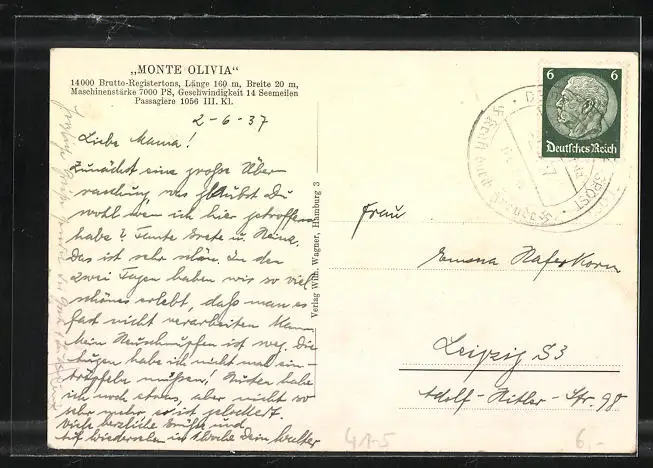 „MONTE OLIVIA“
14000 Brutto-Registertons, Länge 160 m, Breite 20 m,
Maschinenstärke 7000 PS, Geschwindigkeit 14 Seemeilen
Passagiere 1056 III. Kl.
2-6-37
Liebe Mama!
Zunächst eine große Über
raschung, was glaubst Du
wohl wen ich hier getroffen
habe? Tante Grete u. Heina.
Das ist sehr schön. In den
zwei Tagen haben wir so viel
schönes erlebt, daß man es
fast nicht verarbeiten kann.
Mein Heuschnupfen ist weg. Die
Augen habe ich nicht mal ein-
tröpfeln müssen! Husten habe
ich noch etwas, aber nicht so
sehr mehr, er ist gelockert.
Viele herzliche Grüße und
auf Wiedersehn in 1 Woche Dein Walther
Verlag Wilh. Wagner, Hamburg 3
6 6
Deutsches Reich
Kraft durch Freude
Frau
Emma Haferkorn
Leipzig S3
Adolf-Hitler-Str. 98
41-5
6,-